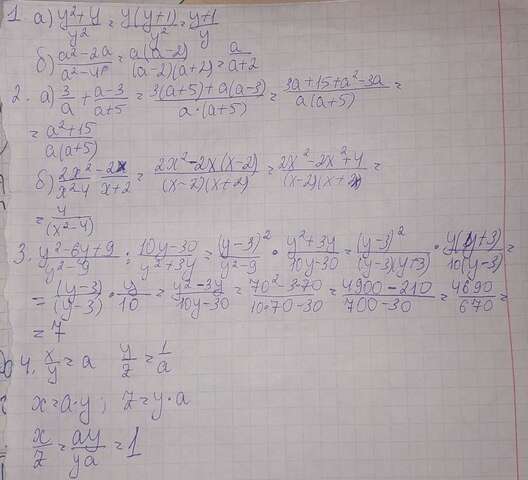 1. а) (y²+y)/y² = y(y+1)/y² = (y+1)/y
б) (a²-2a)/(a²-4) = a(a-2)/(a-2)(a+2) = a/(a+2)
2. а) 3/a + (a-3)/(a+5) = (3(a+5)+a(a-3))/(a·(a+5)) = (3a+15+a²-3a)/(a(a+5)) =
= (a²+15)/(a(a+5))
б) 2x²/(x²-4) - 2x/(x+2) = (2x²-2x(x-2))/((x-2)(x+2)) = (2x²-2x²+4)/((x-2)(x+2)) =
= 4/(x²-4)
3. (y²-6y+9)/(y²-9) : (10y-30)/(y²+3y) = (y-3)²/(y²-9) · (y²+3y)/(10y-30) = (y-3)²/((y-3)(y+3)) · y(y+3)/10(y-3) =
= (y-3)/(y-3) · y/10 = (y²-3y)/(10y-30) = (70²-3·70)/(10·70-30) = (4900-210)/(700-30) = 4690/670 =
= 7
4. x/y = a y/z = 1/a
x = a·y ; z = y·a
x/z = ay/ya = 1